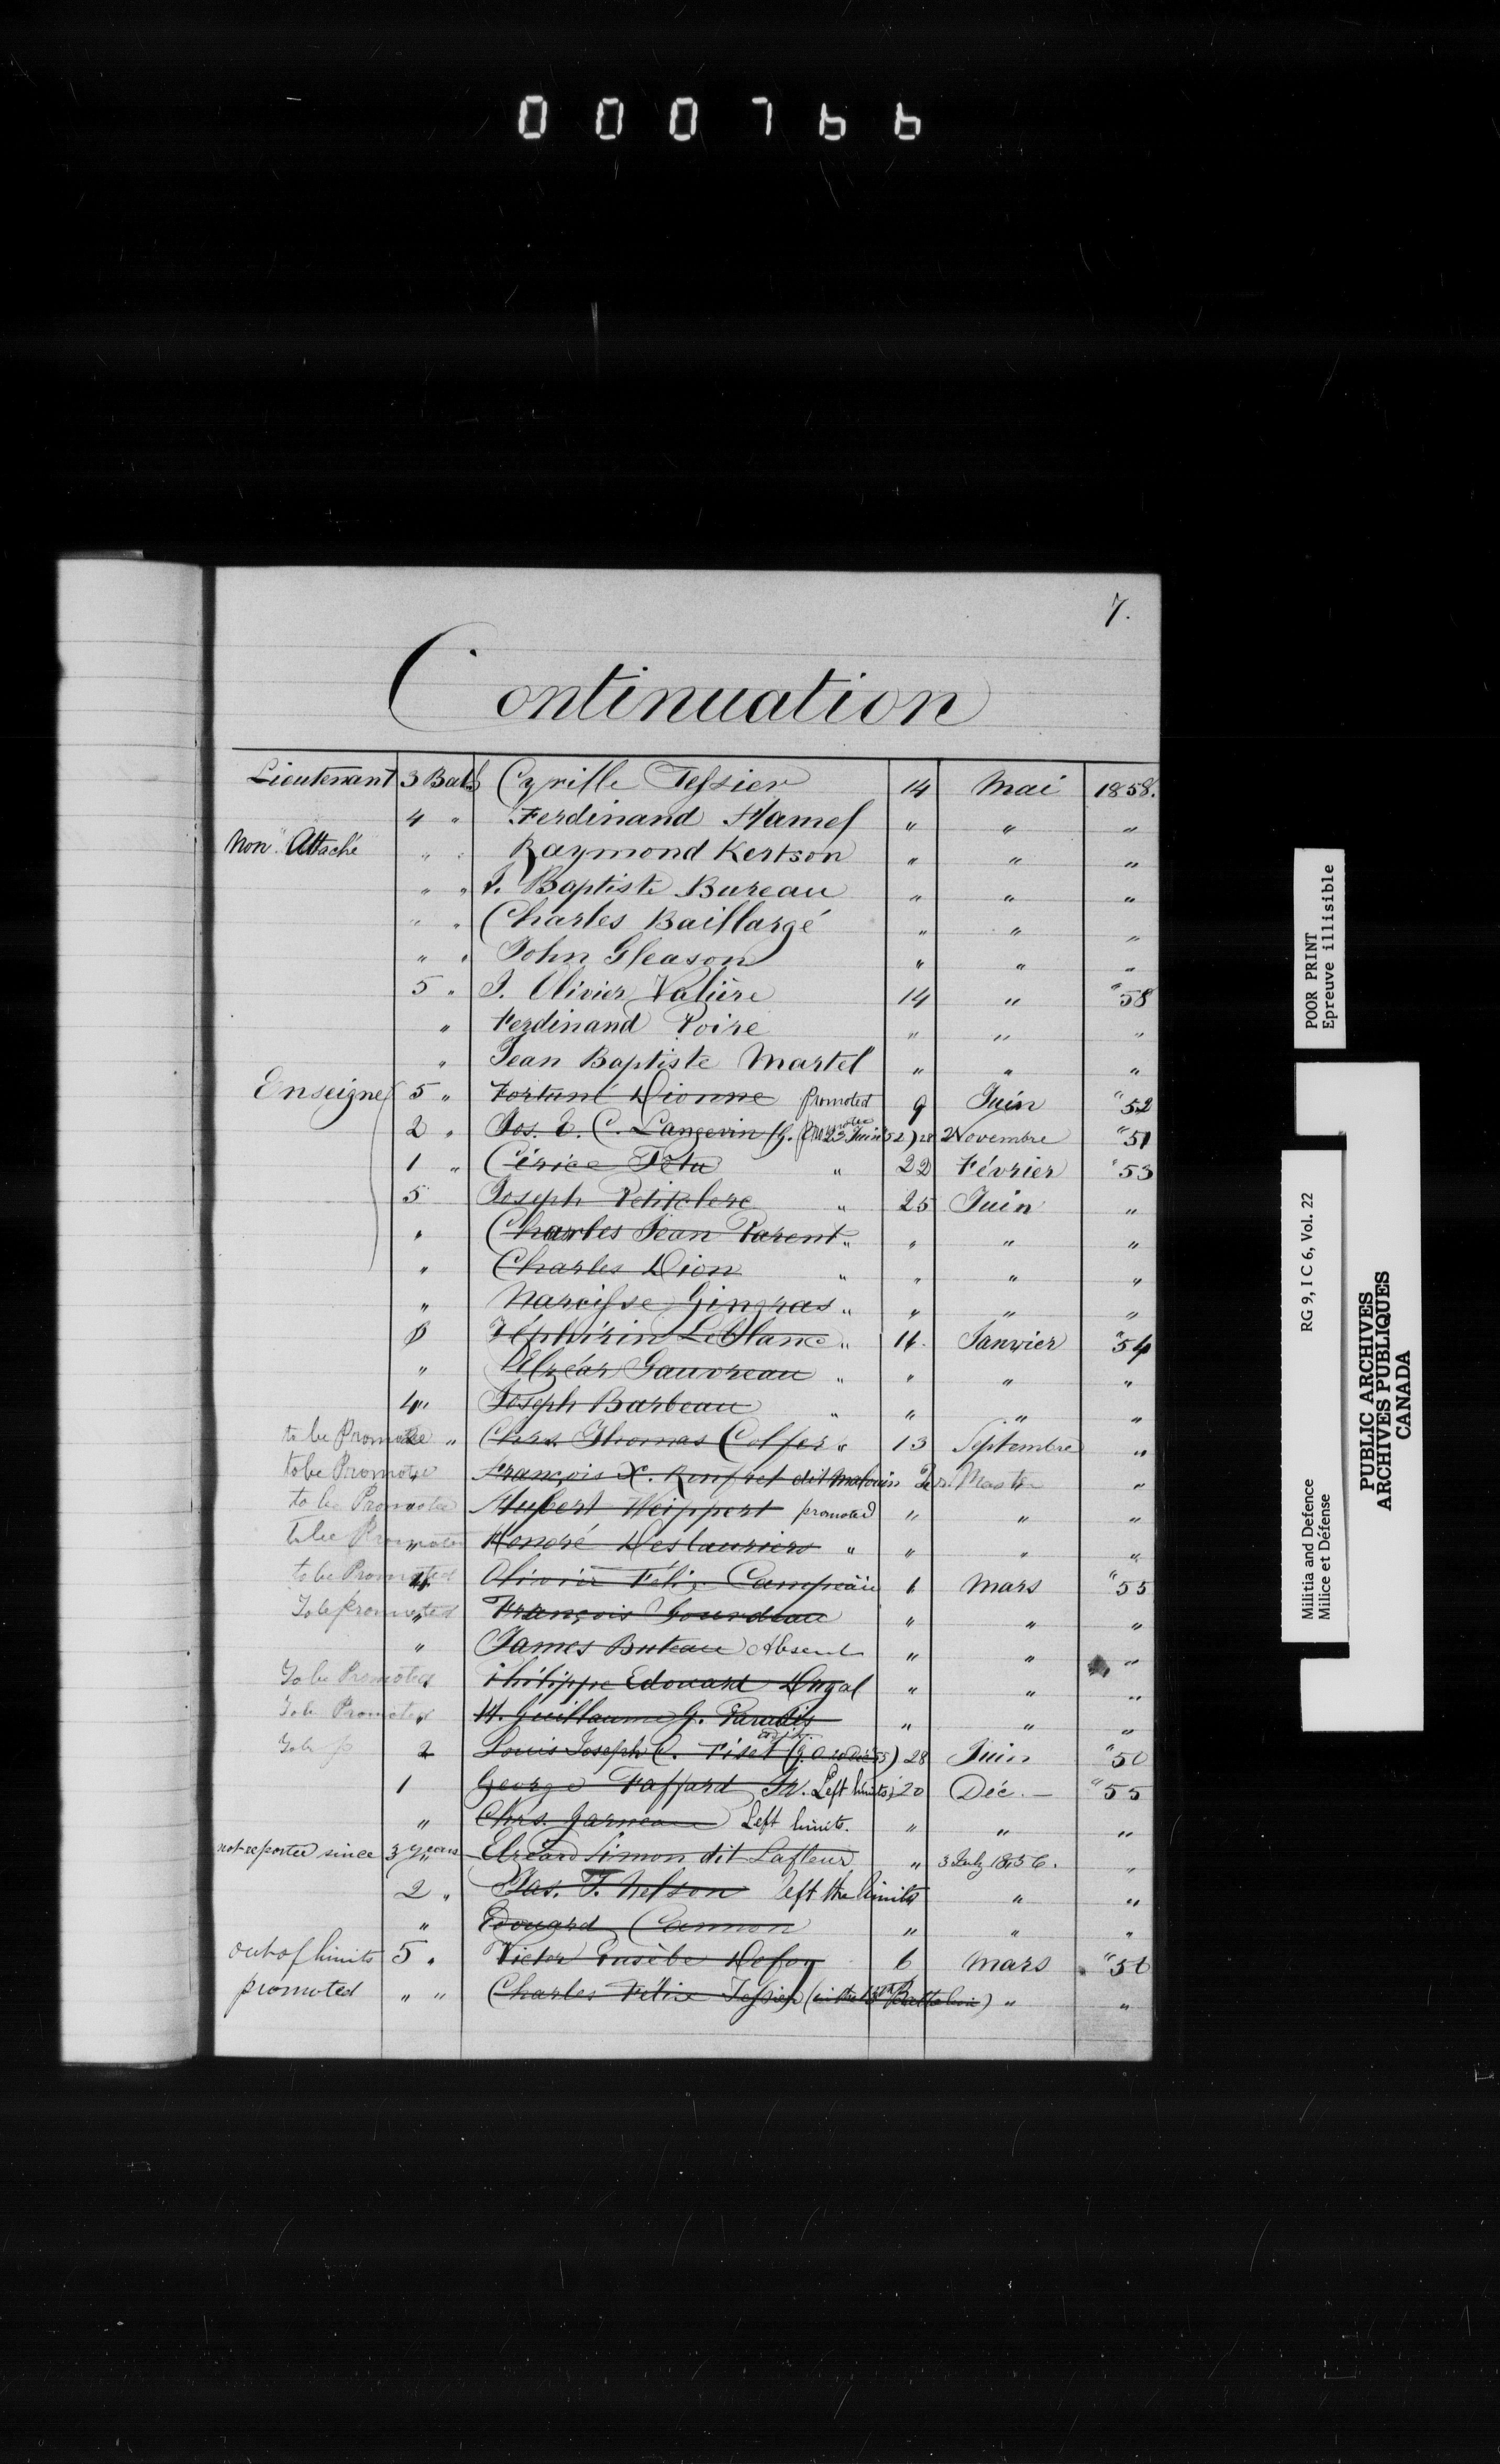 000766
7.
Continuation
Lieutenant 3 Batn Cyrille Tessier 14 Mai 1858.
4 " Ferdinand Hamel " " "
Non Attaché " " Raymond Kertson " " "
" " J. Baptiste Bureau " " "
" " Charles Baillargé " " "
" " John Gleason " " "
5 " J. Olivier Valière 14 " "58
" Ferdinand Poire " " "
" Jean Baptiste Martel " " "
Enseigne 5 " Fortuné Dionne promoted 9 Juin "52
2 " Jos. E. C. Langevin (G. 23 Juin 52) 28 Novembre "51
1 " Cérice Têtu " 22 Février "53
5 Joseph Petitclerc " 25 Juin "
" Charles Jean Parent " " " "
" Charles Dion " " " "
" Narcisse Gingras " " " "
Zéphirin LeBlanc " 11. Janvier "54
" Elzéar Gauvreau " " " "
4 " Joseph Barbeau " " " "
to be Promote 2 " Chrs. Thomas Colfer " 13 Septembre "
to be Promote " François X. Renfret dit Malouin "
to be Promoted Hubert Weippert promoted " " "
to be Promoted " Honoré Deslauriers " " " "
to be Promoted Olivier Félix Campeau 6 Mars "55
To be promoted " François Gourdeau " " "
" James Buteau Absent " " "
To be Promoted " Philippe Edouard Dugal " " "
To be Promoted " H. Guillaume G. Paradis " " "
To be p 2 Louis Joseph C. Fiset 28 Juin "50
1 George Taffard Jr. Left limits 20 Déc. — "55
" Chrs. Garneau Left limits. " " "
not reported since 3 years " Elzéar Simon dit Lafleur " 3 July 1856. "
2 " Jas. F. Nelson left the limits " "
" Edouard Cannon " " "
out of limits 5 " Victor Eusèbe Defoy 6 Mars "56
promoted " " Charles Félix Tessier (in the Battalion) " "
POOR PRINT
Epreuve illisible
Militia and Defence RG 9, I C 6, Vol. 22
Milice et Défense
PUBLIC ARCHIVES
ARCHIVES PUBLIQUES
CANADA